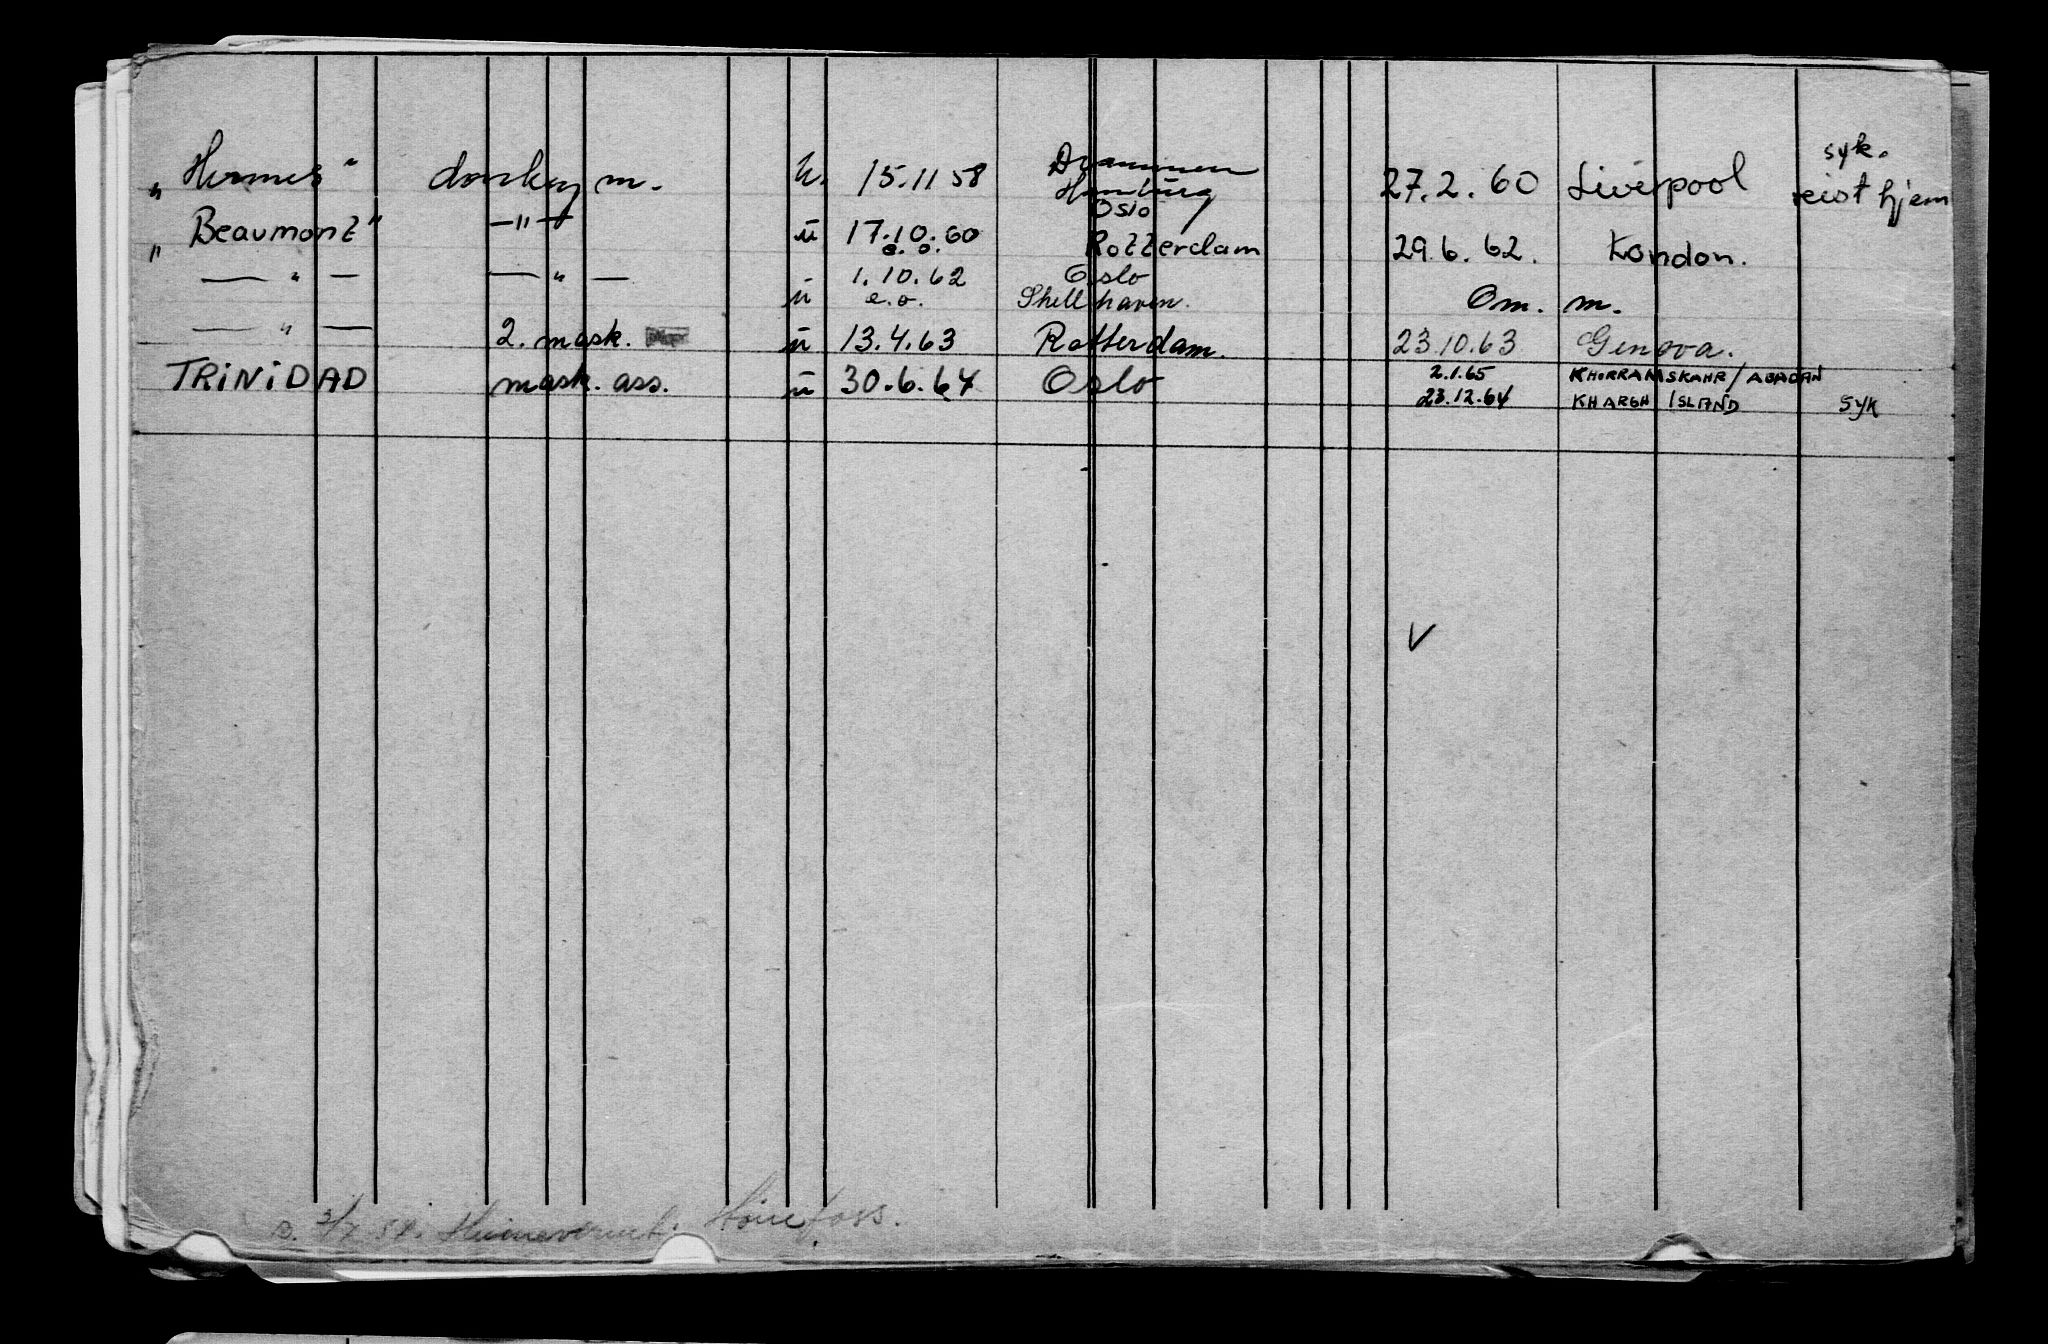 „Hermes" donkeym. u. 15.11 58 Drammen Hamburg 27.2.60 Liverpool syk. reist hjem
„Beaumont" —"— u 17.10.60 e.o. Oslo Rotterdam 29.6.62. London.
—"— —"— u 1.10.62 e.o. Oslo Shellhaven. Om. m.
—"— 2. mask. u 13.4.63 Rotterdam. 23.10.63 Genova.
TRINIDAD mask. ass. u 30.6.64 Oslo 2.1.65 KHORRAMSKAHR/ABADAN
23.12.64 KHARGH ISLAND SYK
V
Hønefoss.